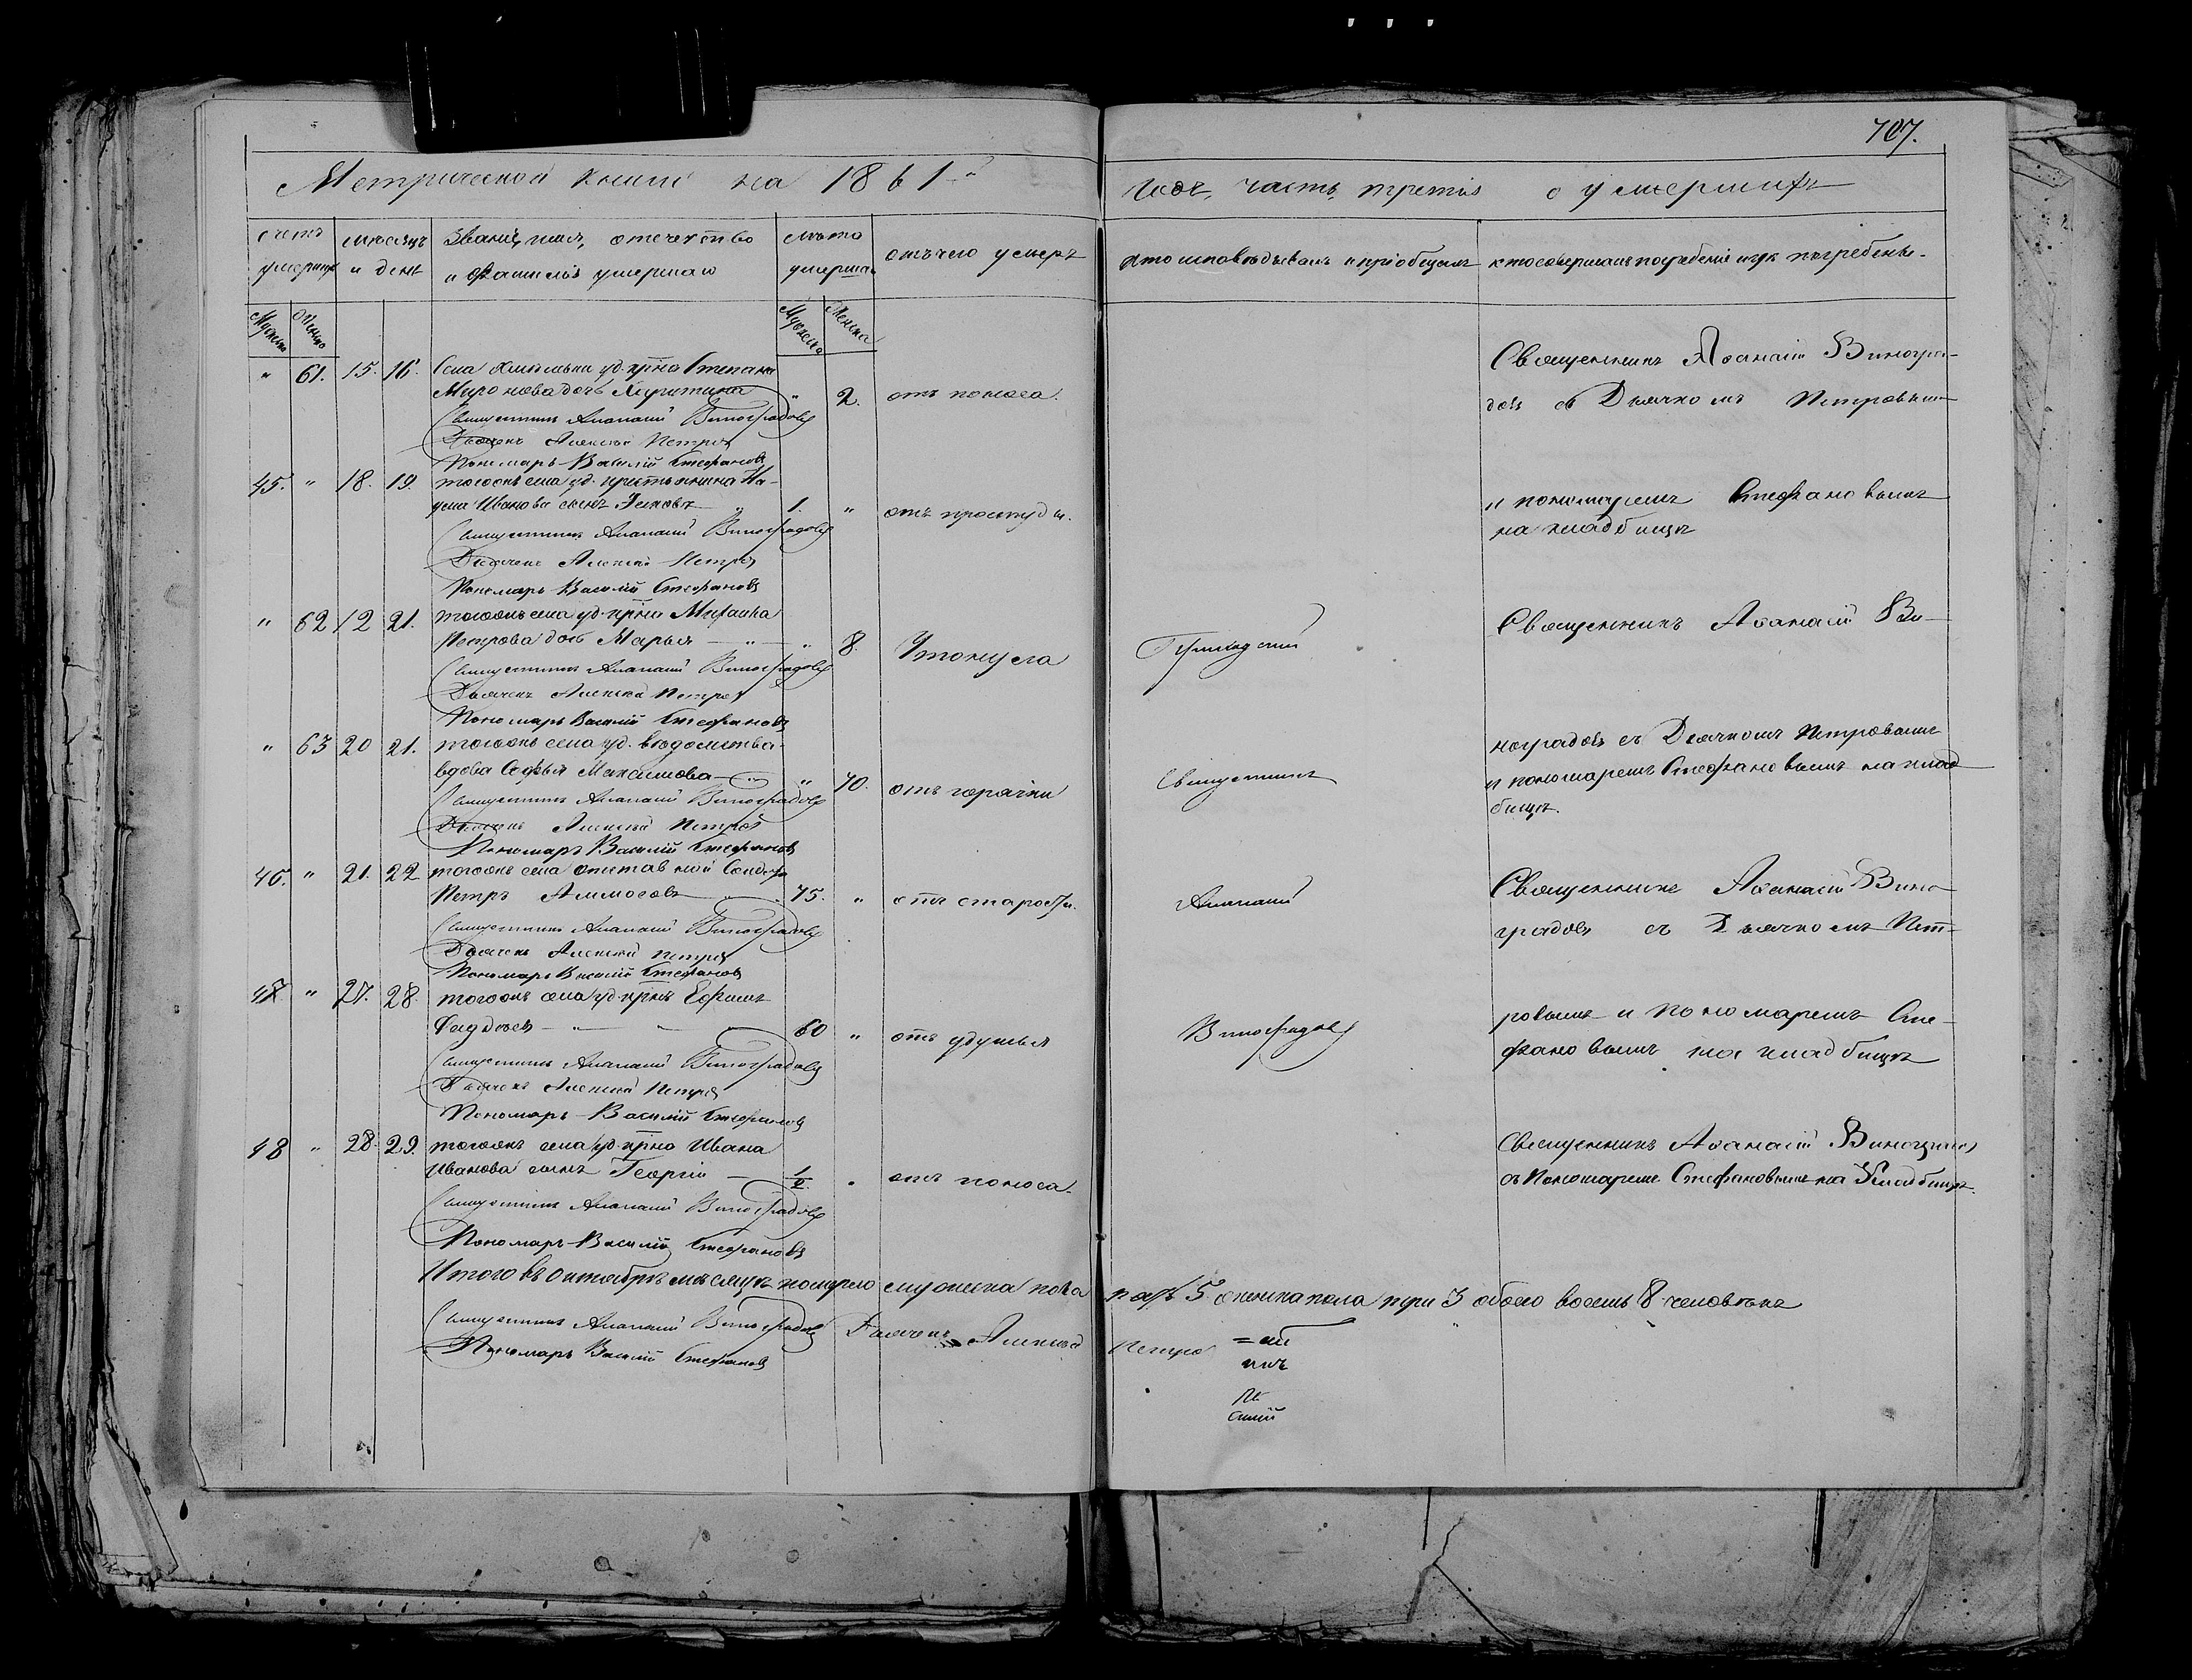 707.
Метрической книги на 1861-й
годъ, часть, третія о умершихъ
счетъ умершихъ
мѣсяцъ и день
званіе, имя, отечество и фамилія умершаго
лѣта умершаго
отъ чего умеръ
кто исповѣдывалъ и пріобщалъ
кто совершалъ погребеніе и гдѣ погребены.
Мужска
Женска
Мужска
Женска
" 61. 15. 16. Села уд. кр-на Степана
Миронова дочь " 2. отъ поноса.
Священникъ Аѳанасій Виноградовъ
Дьячекъ Алексѣй Петровъ
Пономарь Василій Стефановъ
Священникъ Аѳанасій Виногра-
довъ съ Дьячкомъ Петровымъ
45. " 18. 19. тогожъ села уд. крестьянина На-
ума Иванова сынъ 1. " отъ простуды.
Священникъ Аѳанасій Виноградовъ
Дьячекъ Алексѣй Петровъ
Пономарь Василій Стефановъ
и пономаремъ Стефановымъ
на кладбищѣ
" 62 12 21. тогожъ села уд. кр-на Михаила
Петрова дочь Марья " 8. Утонула
Священникъ Аѳанасій Виноградовъ
Дьячекъ Алексѣй Петровъ
Пономарь Василій Стефановъ
Приходскій
Священникъ Аѳанасій Ви-
" 63 20 21. тогожъ села уд. вѣдомства
вдова Софья Максимова " 70. отъ горячки
Священникъ Аѳанасій Виноградовъ
Дьячекъ Алексѣй Петровъ
Пономарь Василій Стефановъ
Священникъ
ноградовъ съ Дьячкомъ Петровымъ
и пономаремъ Стефановымъ на клад-
бищѣ.
46. " 21. 22 тогожъ села отставной Солдатъ
Петръ 75. " отъ старости.
Священникъ Аѳанасій Виноградовъ
Дьячекъ Алексѣй Петровъ
Пономарь Василій Стефановъ
Аѳанасій
Священникъ Аѳанасій Вино-
градовъ съ Дьячкомъ Пет-
47. " 27. 28. тогожъ села уд. кр-нъ Ефимъ
Фаддѣевъ 60 " отъ удушья
Священникъ Аѳанасій Виноградовъ
Дьячекъ Алексѣй Петровъ
Пономарь Василій Стефановъ
Виноградовъ
ровымъ и Пономаремъ Сте-
фановымъ на кладбищѣ
48 " 28. 29. тогожъ села уд. кр-на Ивана
Иванова сынъ Георгій " отъ поноса.
Священникъ Аѳанасій Виноградовъ
Пономарь Василій Стефановъ
Священникъ Аѳанасій Виноградовъ
съ Пономаремъ Стефановымъ на Кладбищѣ.
Итого въ октябрѣ мѣсяцѣ померло мужеска пола пять 5. женска пола три 3 обоего восемь 8 человѣкъ
Священникъ Аѳанасій Виноградовъ Дьячекъ Алексѣй Петро
Пономарь Василій Стефановъ